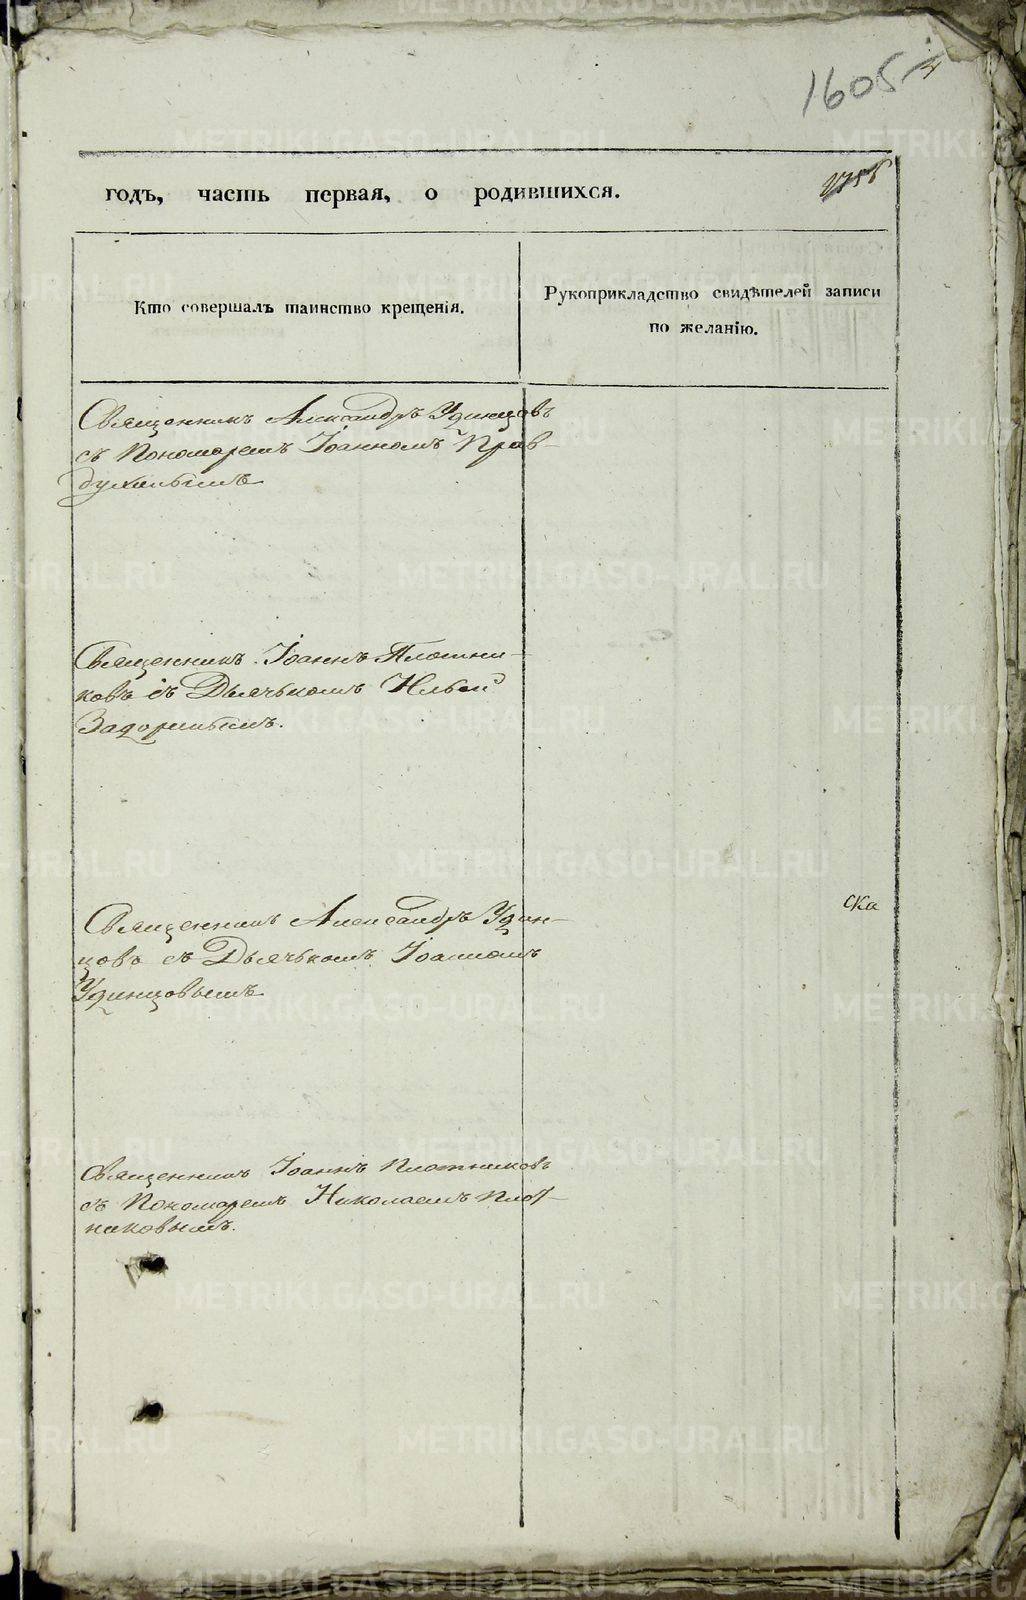 1605
годъ, часть первая, о родившихся.
Кто совершалъ таинство крещенія.
Рукоприкладство свидѣтелей записи
по желанію.
Священникъ Александръ Удинцовъ
съ Пономаремъ Іоанномъ Прав-
духинымъ
Священникъ Іоаннъ Плотни-
ковъ съ Дьячькомъ Ильей
Задоринымъ.
ска
Священникъ Александръ Удин-
цовъ съ Дьячькомъ Іоанномъ
Удинцовымъ
Священникъ Іоаннъ Плотниковъ
съ Пономаремъ Николаемъ Плот-
никовымъ.
METRIKI.GASO-URAL.RU